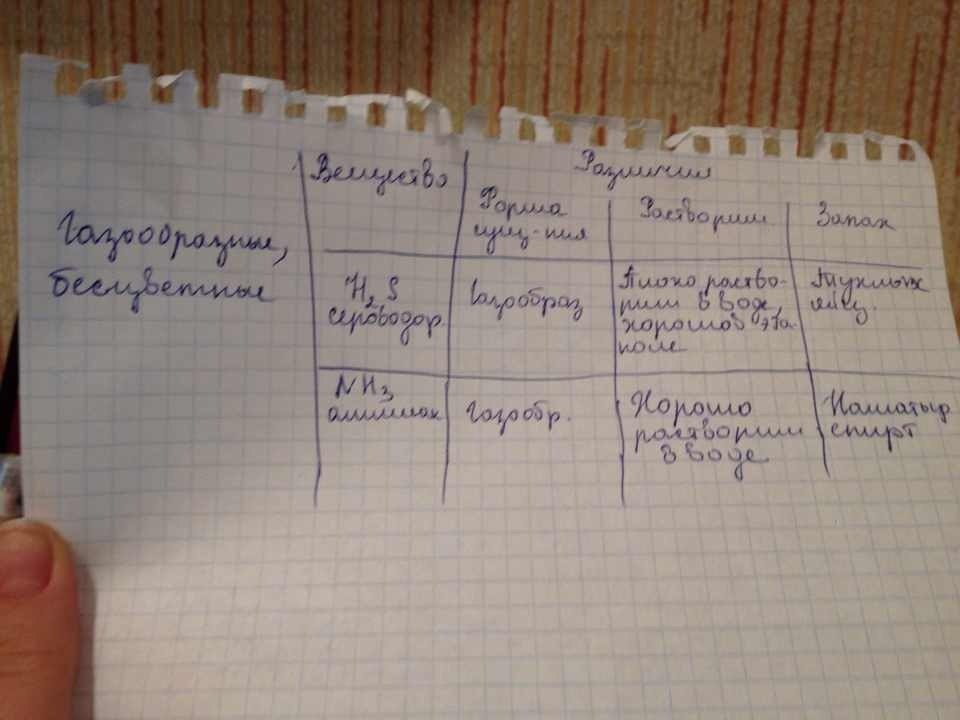 Газообразные,
бесцветные
Вещество
Различия
Форма
сущ-ния
Растворим
Запах
H₂S
сероводор.
газообраз
Плохо раство-
рим в воде,
хорошо в эта-
ноле
Тухлых
яиц.
NH₃
аммиак
газообр.
Хорошо
растворим
в воде
Нашатыр
спирт